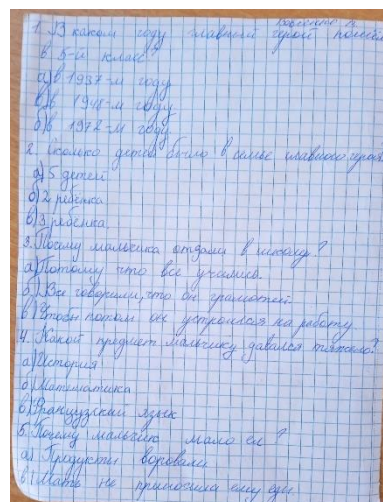 1. В каком году главный герой пошёл
в 5-й класс?
а) в 1937-м году
в) в 1948-м году
б) в 1972-м году
2. Сколько детей было в семье главного героя
а) 5 детей
б) 2 ребёнка
в) 3 ребёнка
3. Почему мальчика отдали в школу?
а) Потому что все учились.
б) Все говорили, что он грамотей
в) Чтобы потом он устроился на работу
4. Какой предмет мальчику давался тяжело?
а) История
б) Математика
в) Французский язык
5. Почему мальчик мало ел?
а) Продукты воровали
в) Мать не приносила ему еды